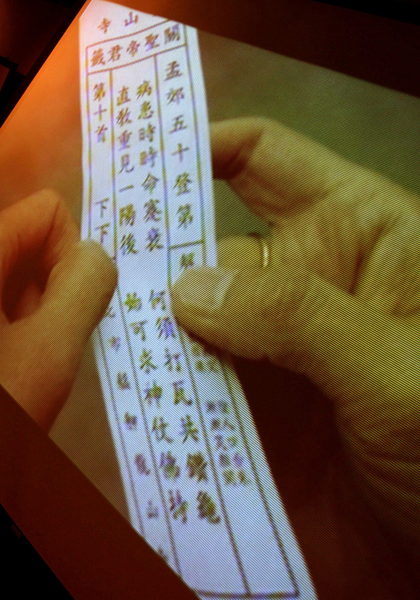 山寺
關聖帝君籤
孟郊五十登第
解
病患時時命蹇衰 何須打瓦共鑽龜
直教重見一陽後 始可求神仗佛持
第十首 下下
北市艋舺龍山